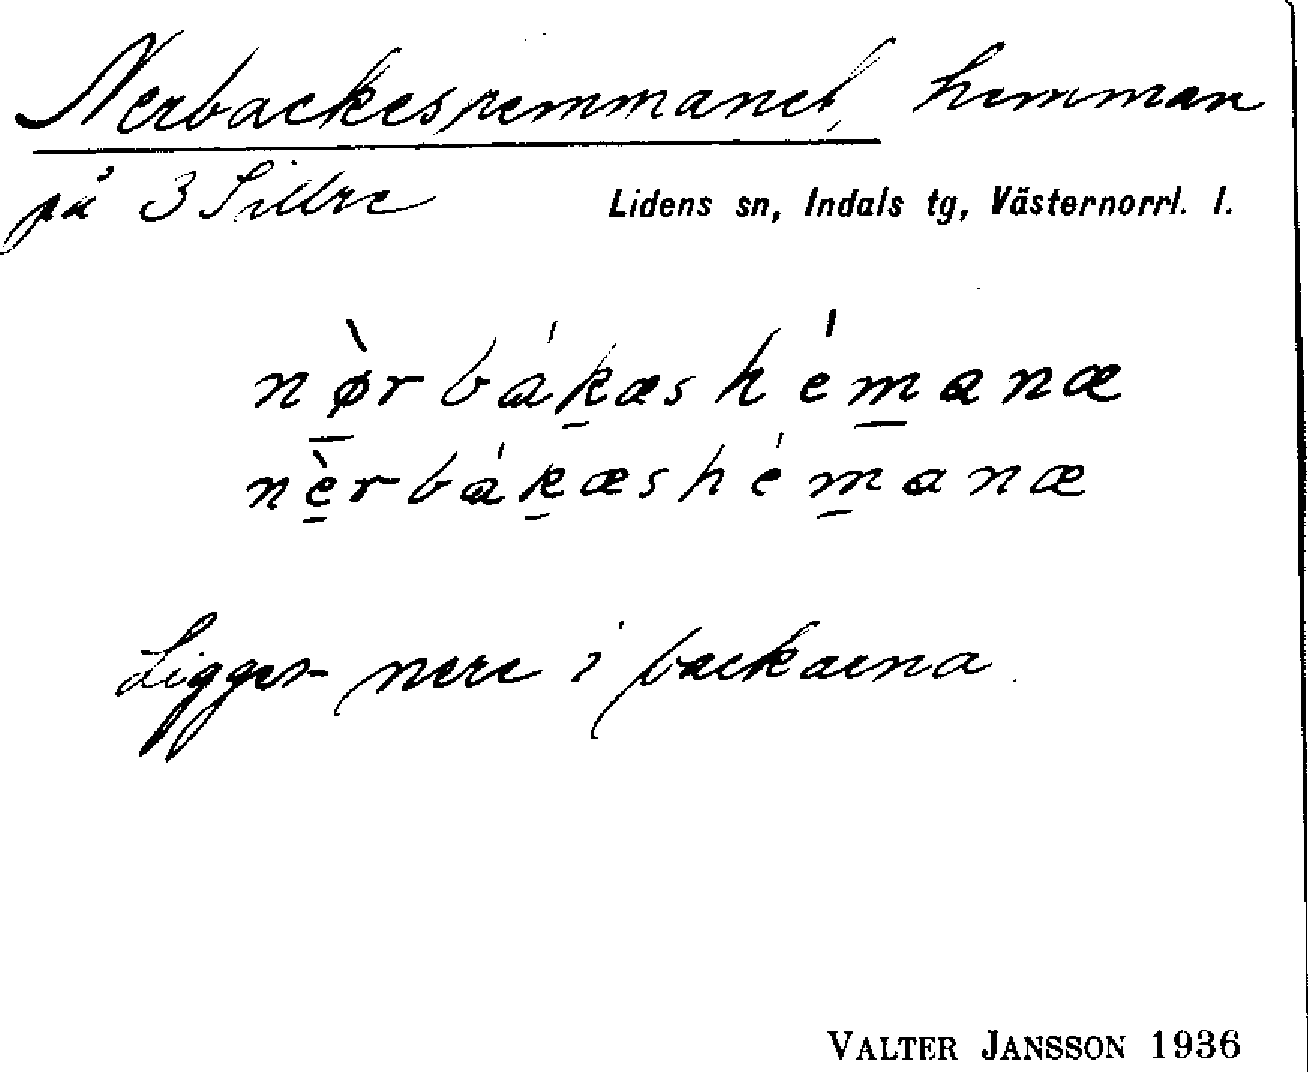 Nerbackeshemmanet, hemman
på 3 Sillre Lidens sn, Indals tg, Västernorrl. l.
nø̀rbákæshémanæ
nèrbákæshémanæ
Ligger nere i backarna.
VALTER JANSSON 1936